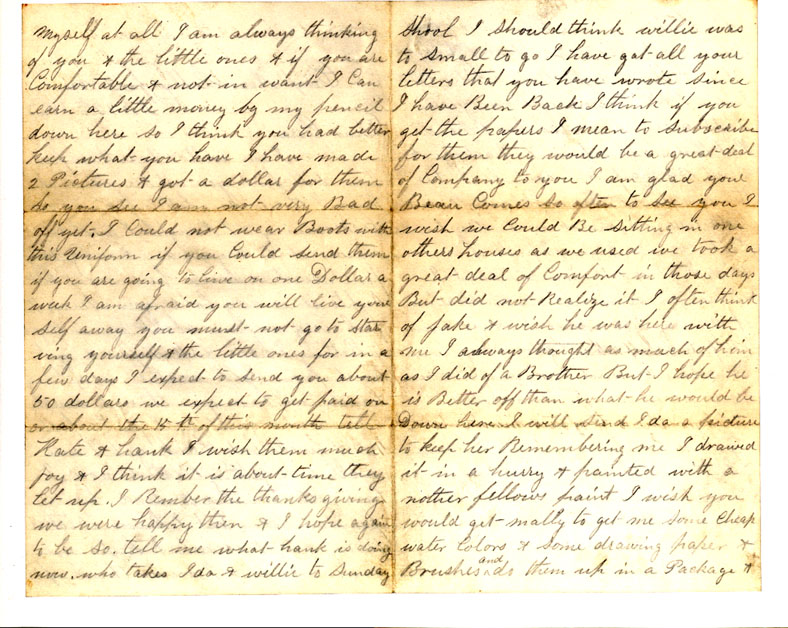 myself at all I am always thinking
of you & the little ones & if you are
Comfortable & not in want I Can
earn a little money by my pencil
down here so I think you had better
keep what you have I have made
2 Pictures & got a dollar for them
so you see I am not very Bad
off yet. I Could not wear Boots with
this Uniform if you Could send them
if you are going to live on one Dollar a
week I am afraid you will live your
self away you must not go to star
ving yourself & the little ones for in a
few days I expect to send you about
50 dollars we expect to get paid on
or about the 15th of this month tell
Kate & hank I wish them much
joy & I think it is about time they
let up. I Rember the thanks giving
we were happy then & I hope again
to be so. tell me what hank is doing
now. who takes Ida & willie to Sunday
Shool I should think willie was
to small to go I have got all your
letters that you have wrote since
I have Been Back I think if you
get the papers I mean to subscribe
for them they would be a great deal
of Company to you I am glad your
Beau Comes so often to see you I
wish we Could Be sitting in one
others houses as we used we took a
great deal of Comfort in those days
But did not Realize it I often think
of Jake & wish he was here with
me I always thought as much of him
as I did of a Brother But I hope he
is Better off than what he would be
Down here I will send Ida a picture
to keep her Remembering me I drawed
it in a hurry & painted with a
nother fellows paint I wish you
would get mally to get me some Cheap
water Colors & some drawing paper &
Brushes and do them up in a Package &